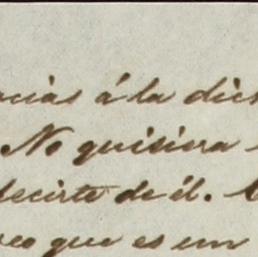 acias á la dich
No quisiera
decirte de él.
eo que es un